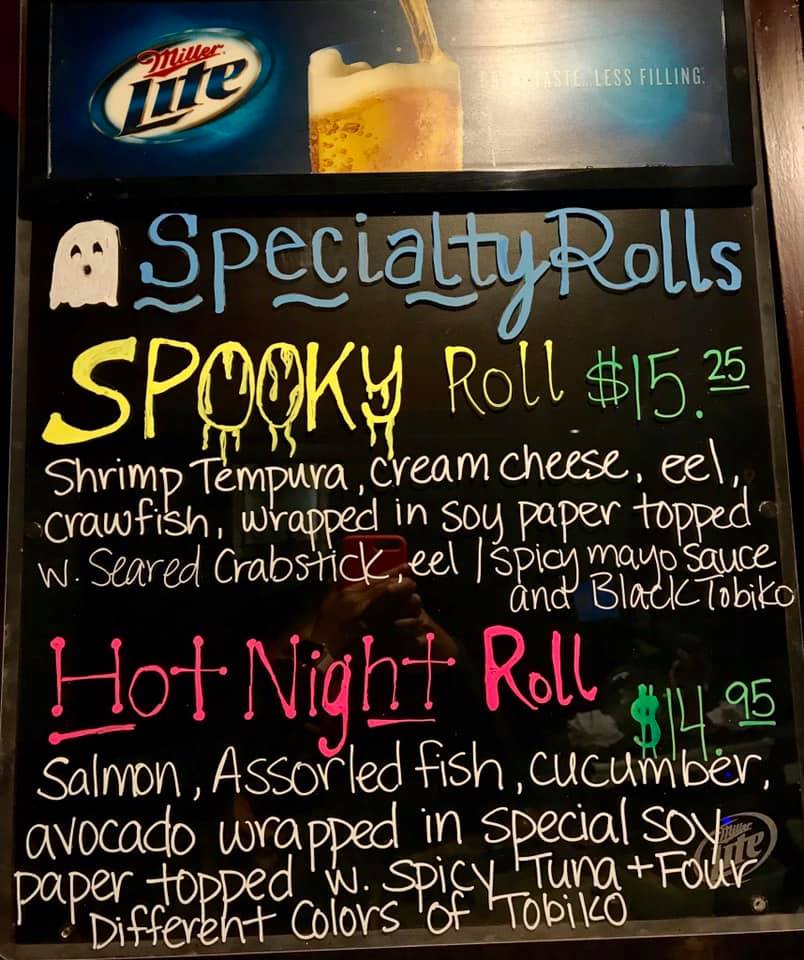 Miller
Lite
TASTE. LESS FILLING.
Specialty Rolls
SPOOKY Roll $15.25
Shrimp Tempura, cream cheese, eel,
crawfish, wrapped in soy paper topped
w. Seared Crabstick, eel / spicy mayo sauce
and Black Tobiko
Hot Night Roll $14.95
Salmon, Assorted fish, cucumber,
avocado wrapped in special soy
paper topped w. spicy Tuna + Four
Different Colors of Tobiko
Miller
Lite